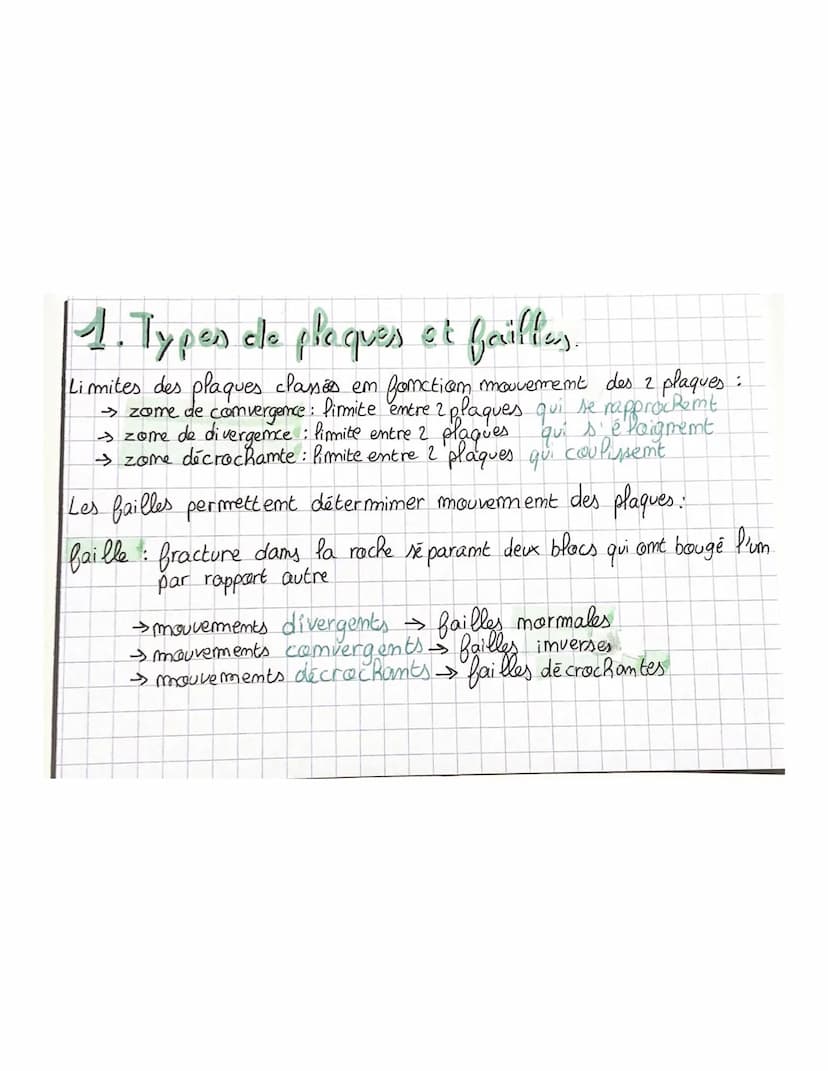 1. Types de plaques et failles.
Limites des plaques classées en fonction mouvement des 2 plaques :
→ zone de convergence : limite entre 2 plaques qui se rapprochent
→ zone de divergence : limite entre 2 plaques qui s'éloignent
→ zone décrochante : limite entre 2 plaques qui coulissent
Les failles permettent déterminer mouvement des plaques :
faille : fracture dans la roche séparant deux blocs qui ont bougé l'un
par rapport autre
→ mouvements divergents → failles normales
→ mouvements convergents → failles inverses
→ mouvements décrochants → failles décrochantes